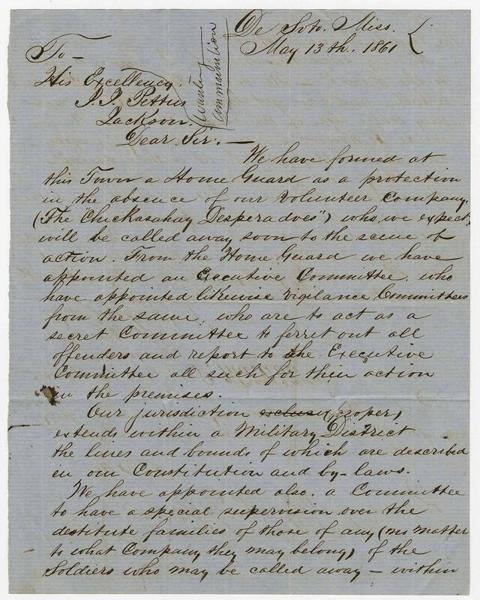 De Soto. Miss.
May 13th. 1861
To—
His Excellency
J. J. Pettus
Jackson.
Dear Sir.—
Wanting
Ammunition
We have formed at
this Town a Home Guard as a protection
in the absence of our Volunteer Company.
("The Chickasahay Desperadoes") who, we expect,
will be called away soon to the scene of
action. From the Home Guard we have
appointed an Executive Committee, who
have appointed likewise Vigilance Committees
from the same, who are to act as a
secret Committee to ferret out all
offenders and report to the Executive
Committee all such for their action
in the premises.
Our jurisdiction (proper)
extends within a Military District
the lines and bounds of which are described
in our Constitution and by-laws.
We have appointed also, a Committee
to have a special supervision over the
destitute families of those of any (no matter
to what Company they may belong) of the
Soldiers who may be called away — within